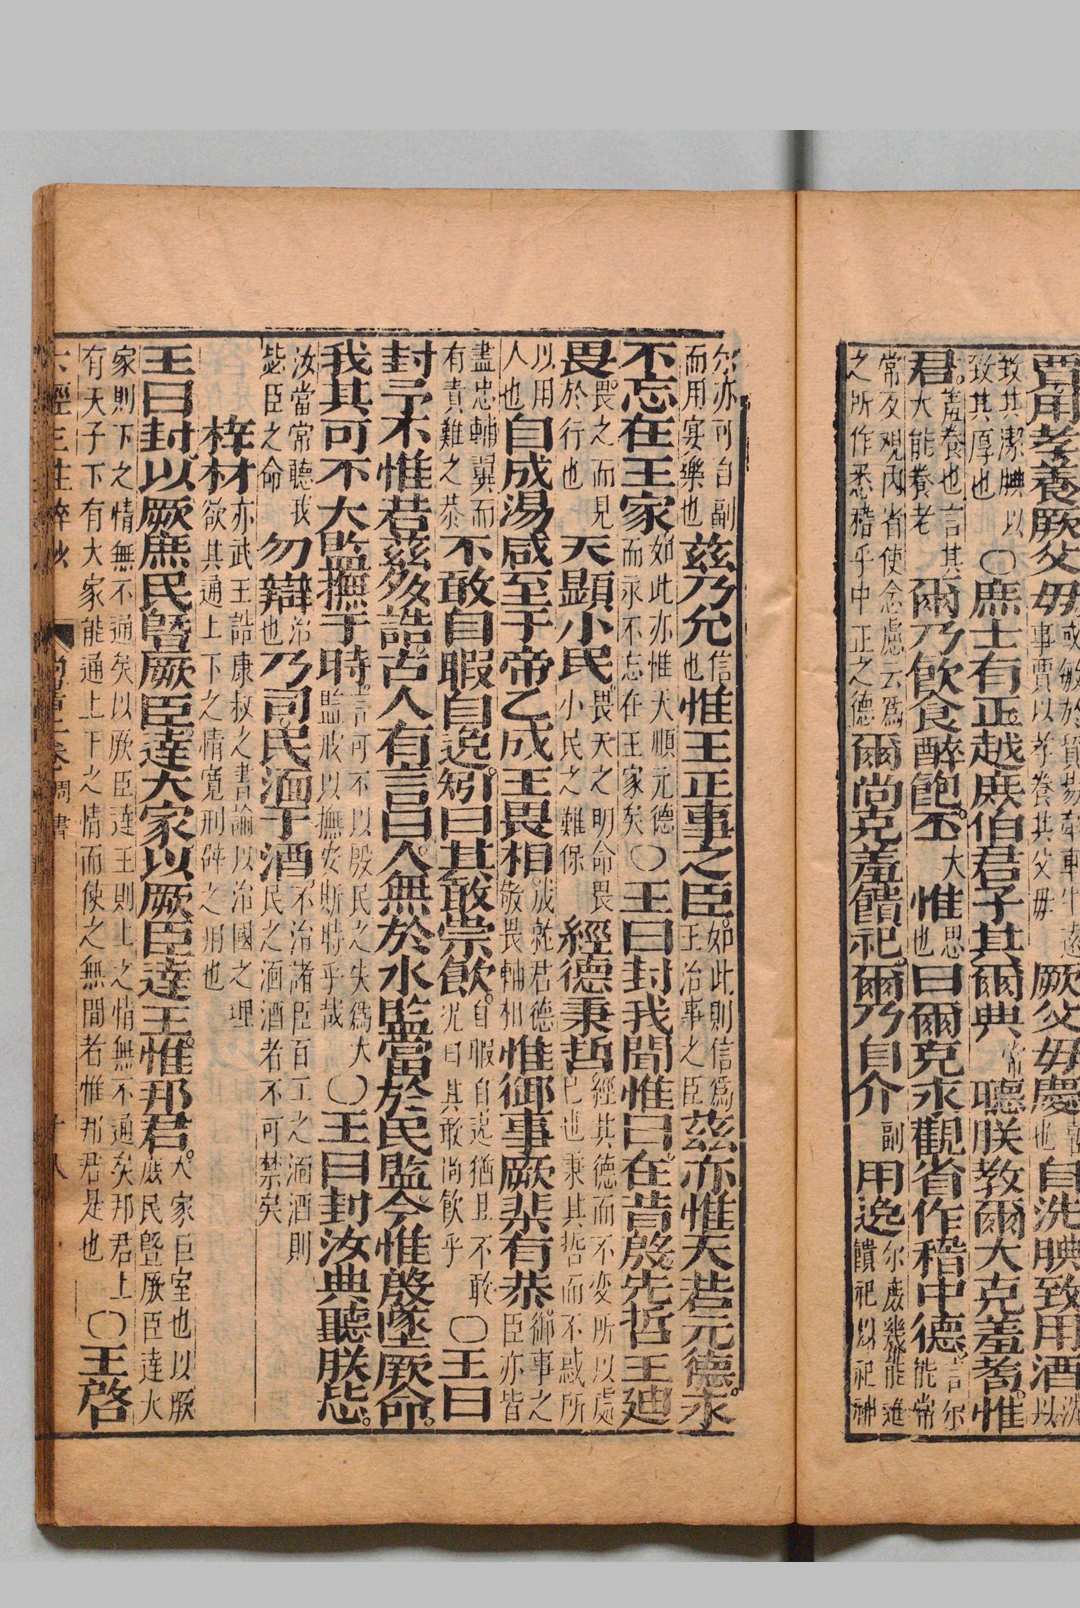 賈用孝養厥父母或敏於貿易牽車牛遠事賈以孝養其父母厥父母慶喜也自洗腆致用酒洗以
致其潔腆以致其厚也○庶士有正越庶伯君子其爾典常聽朕教爾大克羞耇惟
君羞養也言其大能養老爾乃飲食醉飽。丕大惟思也曰爾克永觀省作稽中德言尔能常
常反觀內省使念慮云為之所作悉稽乎中正之德爾尚克羞饋祀。爾乃自介副用逸尔庶幾能進饋祀以祀神
尔亦可自副而用宴樂也茲乃允信也惟王正事之臣。如此則信為王治事之臣茲亦惟天若元德。永
不忘在王家如此亦惟天順元德而永不忘在王家矣○王曰封我聞惟曰在昔殷先哲王迪
畏畏之而見於行也天顯小民畏天之明命畏小民之難保經德秉哲經其德而不變所以處己也秉其哲而不惑所
以用人也自成湯咸至于帝乙成王畏相成就君德敬畏輔相惟御事厥棐有恭。御事之臣亦皆
盡忠輔翼而有責難之恭不敢自暇自逸。矧曰其敢崇飲。自暇自逸猶且不敢況曰其敢尚飲乎○王曰
封予不惟若茲多誥。古人有言曰人無於水監當於民監今惟殷墜厥命。
我其可不大監撫于時。言可不以殷民之失為大監戒以撫安斯時乎哉○王曰封汝典聽朕毖。
汝當常聽我毖臣之命勿辯治也乃司民湎于酒不治諸臣百工之湎酒則民之湎酒者不可禁矣
梓材亦武王誥康叔之書諭以治國之理欲其通上下之情寬刑辟之用也
王曰封以厥庶民暨厥臣達大家以厥臣達王惟邦君。大家巨室也以厥庶民暨厥臣達大
家則下之情無不通矣以厥臣達王則上之情無不通矣邦君上有天子下有大家能通上下之情而使之無間者惟邦君是也○王啓
六經三注粹抄 尚書上卷 周書 十八